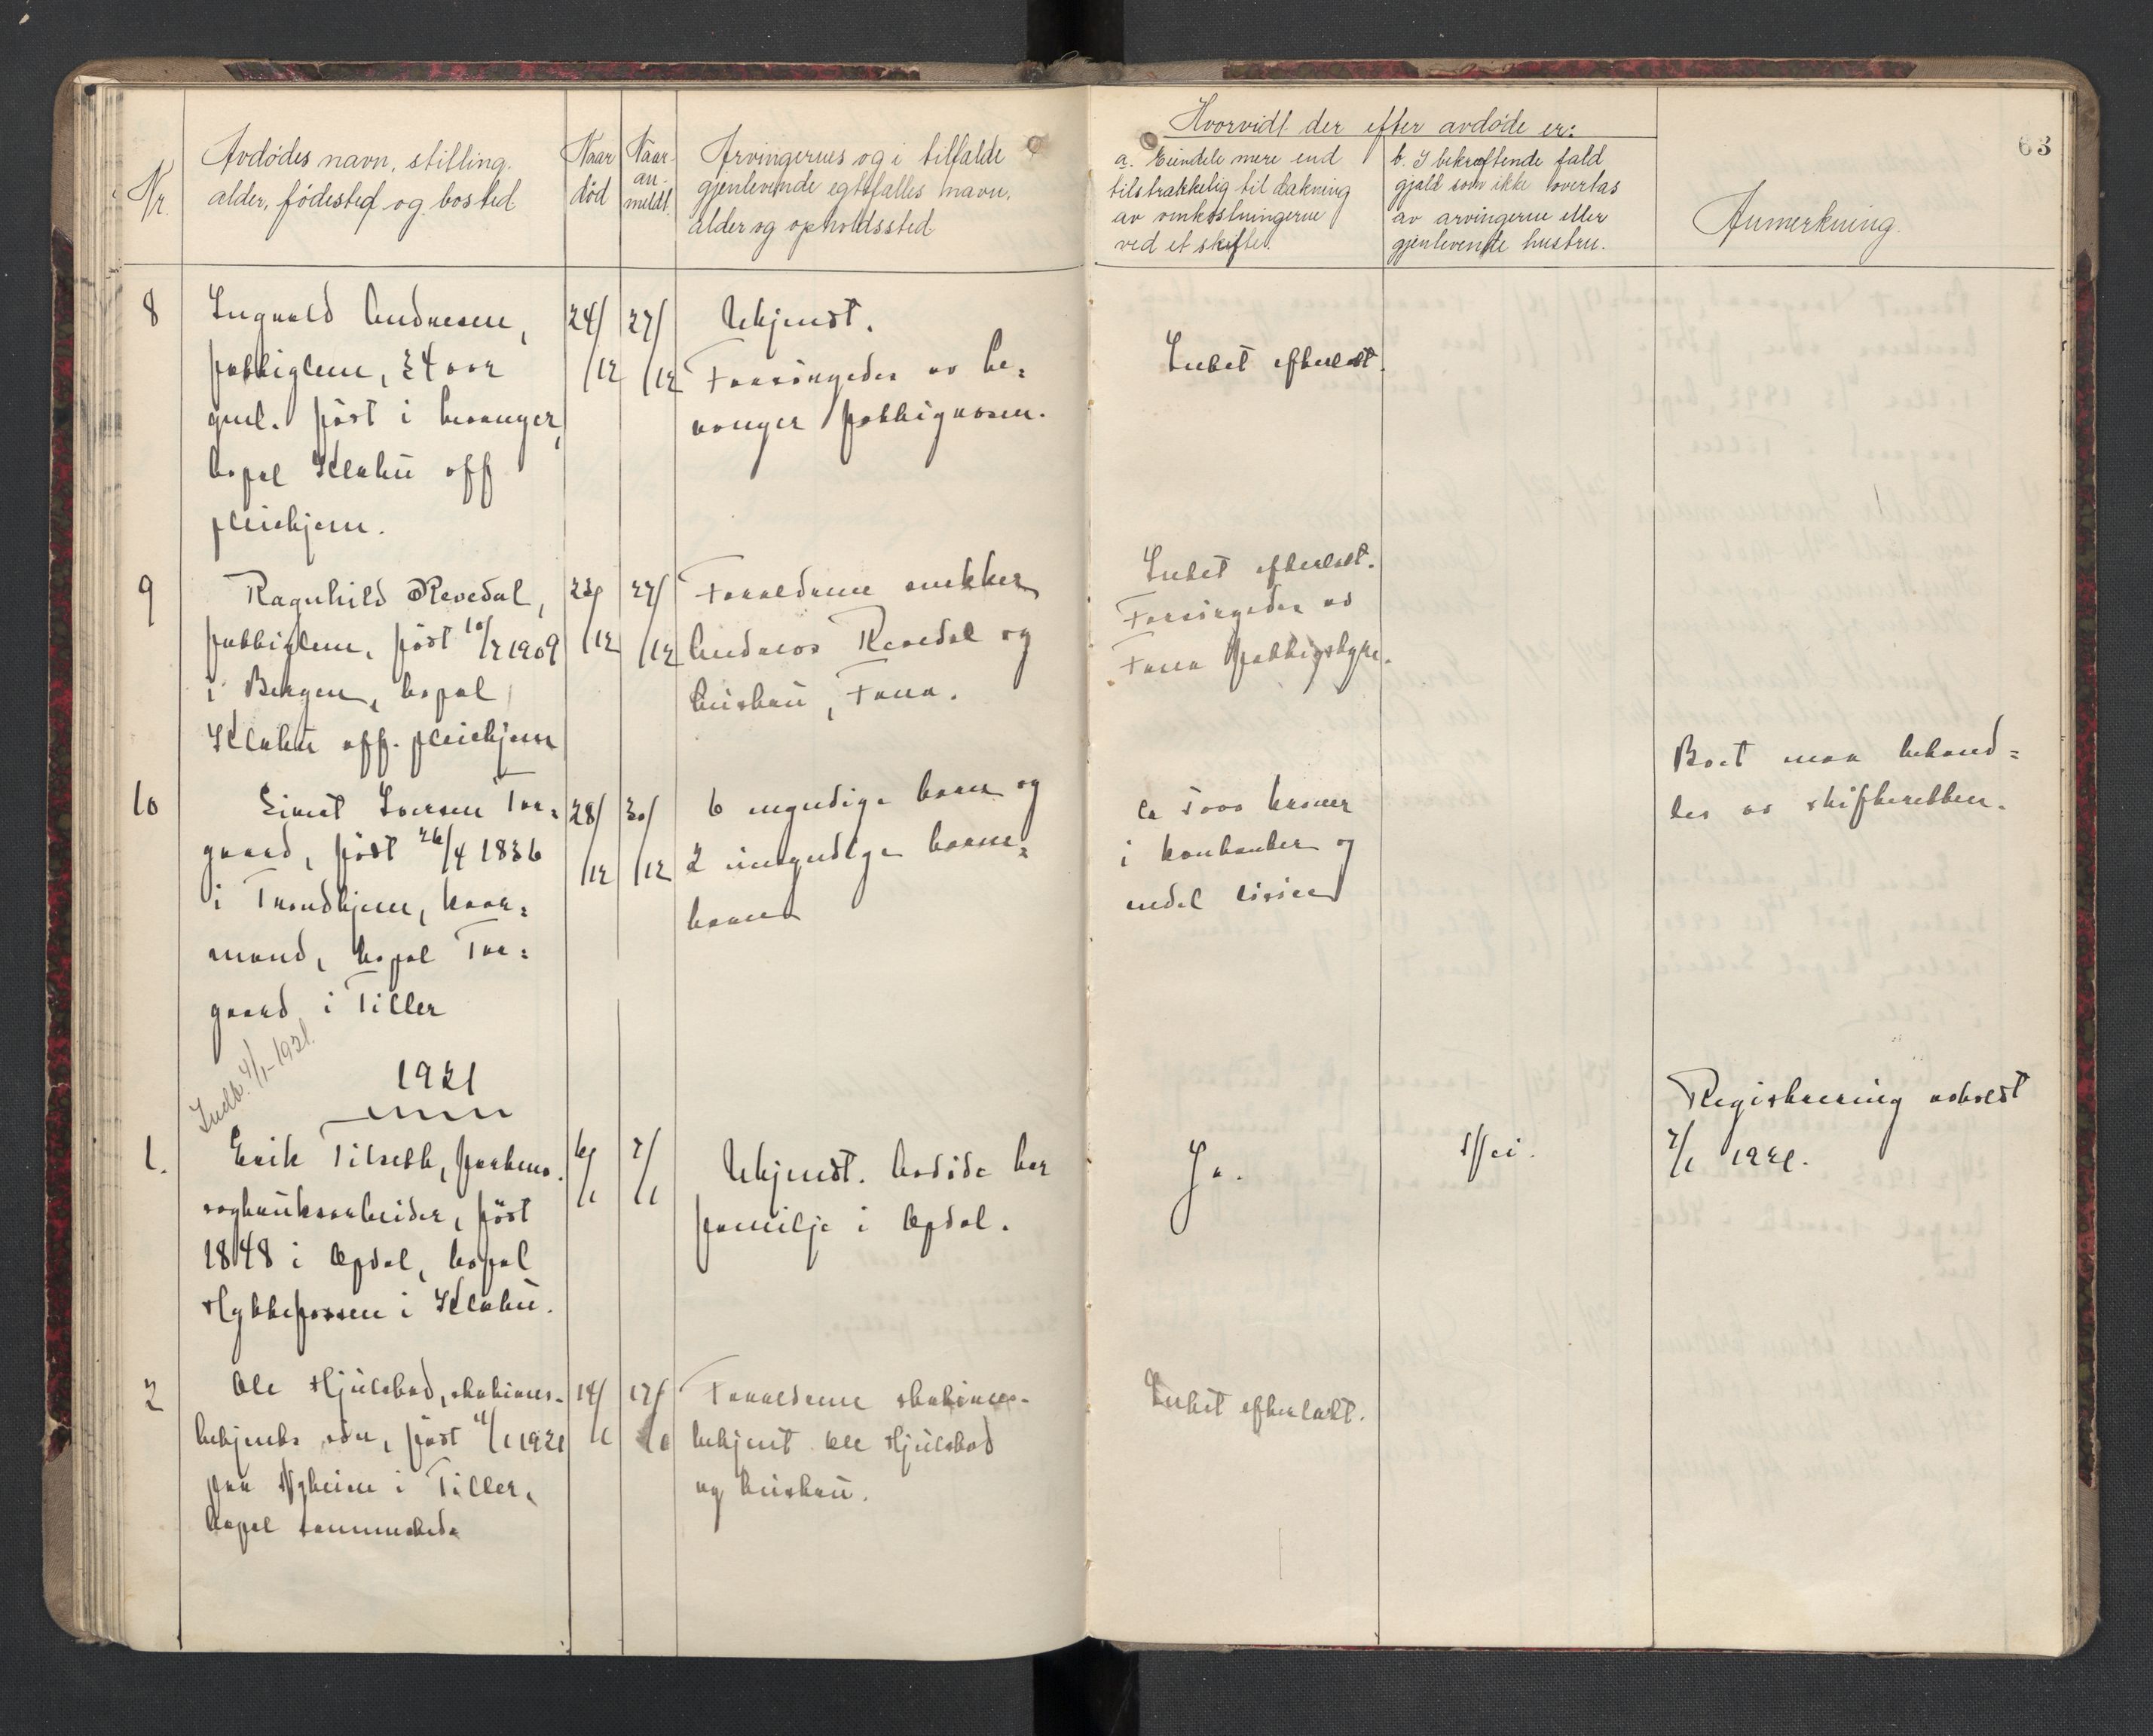 63
Nr.
Avdødes navn, stilling.
alder, fødested og bosted
Naar
død
Naar
an-
meldt.
Arvingernes og i tilfælde
gjenlevende egtefælles navn,
alder og opholdssted
Hvorvidt der efter avdøde er:
a. Eiendele mere end
tilstrækkelig til dækning
av omkostningerne
ved et skifte.
b. I bekræftende fald
gjæld som ikke overtas
av arvingerne eller
gjenlevende hustru.
Anmerkning.
8
Ingvald Andresen,
fattiglem, 24 aar
gml. født i Levanger,
bopæl Klæbu off
pleiehjem.
24/
/12
27/
/12
Ukjendt.
Forsørgedes av Le-
vanger fattigvæsen.
Intet efterlatt.
9
Ragnhild Revedal,
fattiglem, født 10/2 1909
i Bergen, bopæl
Klæbu off. pleiehjem
23/
/12
27/
/12
Forældrene snekker
Andreas Revedal og
hustru, Fana.
Intet efterlatt.
Forsørgedes av
Fana fattigstyre.
10
Einert Iversen Tor-
gaard, født 26/4 1836
i Trondhjem, kaar-
mand, bopæl Tor-
gaard i Tiller
28/
/12
30/
/12
6 myndige barn og
2 umyndige barne-
barn
ca 5000 kroner
i kontanter og
endel løsøre
Boet maa behand-
les av skifteretten.
Indb. 4/1-1921.
1921
1.
Erik Tilseth, forhenv.
sagbruksarbeider, født
1848 i Opdal, bopæl
Hyttefossen i Klæbu.
6/
/1
7/
/1
Ukjendt. Avdøde har
familje i Opdal.
Ja.
Nei.
Registrering avholdt
7/1 1921.
2
Ole Hjulstad, stations-
betjents søn, født 11/1 1921
paa Nyheim i Tiller,
bopæl sammesteds
14/
/1
17/
/1
Forældrene stations-
betjent Ole Hjulstad
og hustru.
Intet efterlatt.